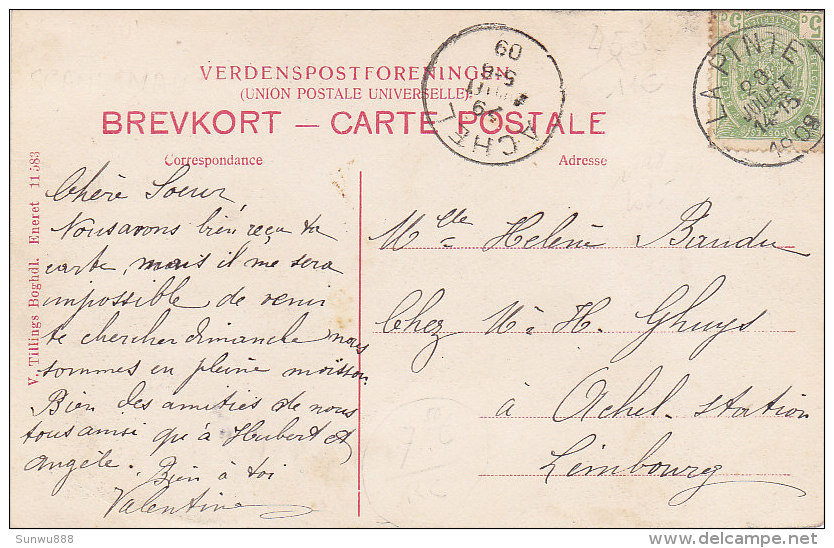 VERDENSPOSTFORENINGEN
(UNION POSTALE UNIVERSELLE)
BREVKORT — CARTE POSTALE
Correspondance
Adresse
V. Tillings Boghdl. Eneret 11583
ACHEL
09
LA PINTE
14-15
JUILLET
1909
5c
Chère Soeur,
Nous avons bien reçu ta
carte, mais il me sera
impossible de venir
te chercher dimanche nous
sommes en pleine moisson.
Bien des amitiés de nous
tous ainsi qu'à Hubert et
Angèle. Bien à toi
Valentine
Mlle Helène Baudu
Chez Mr H. Ghuys
à Achel-station
Limbourg
Sunwu888
delcampe.net